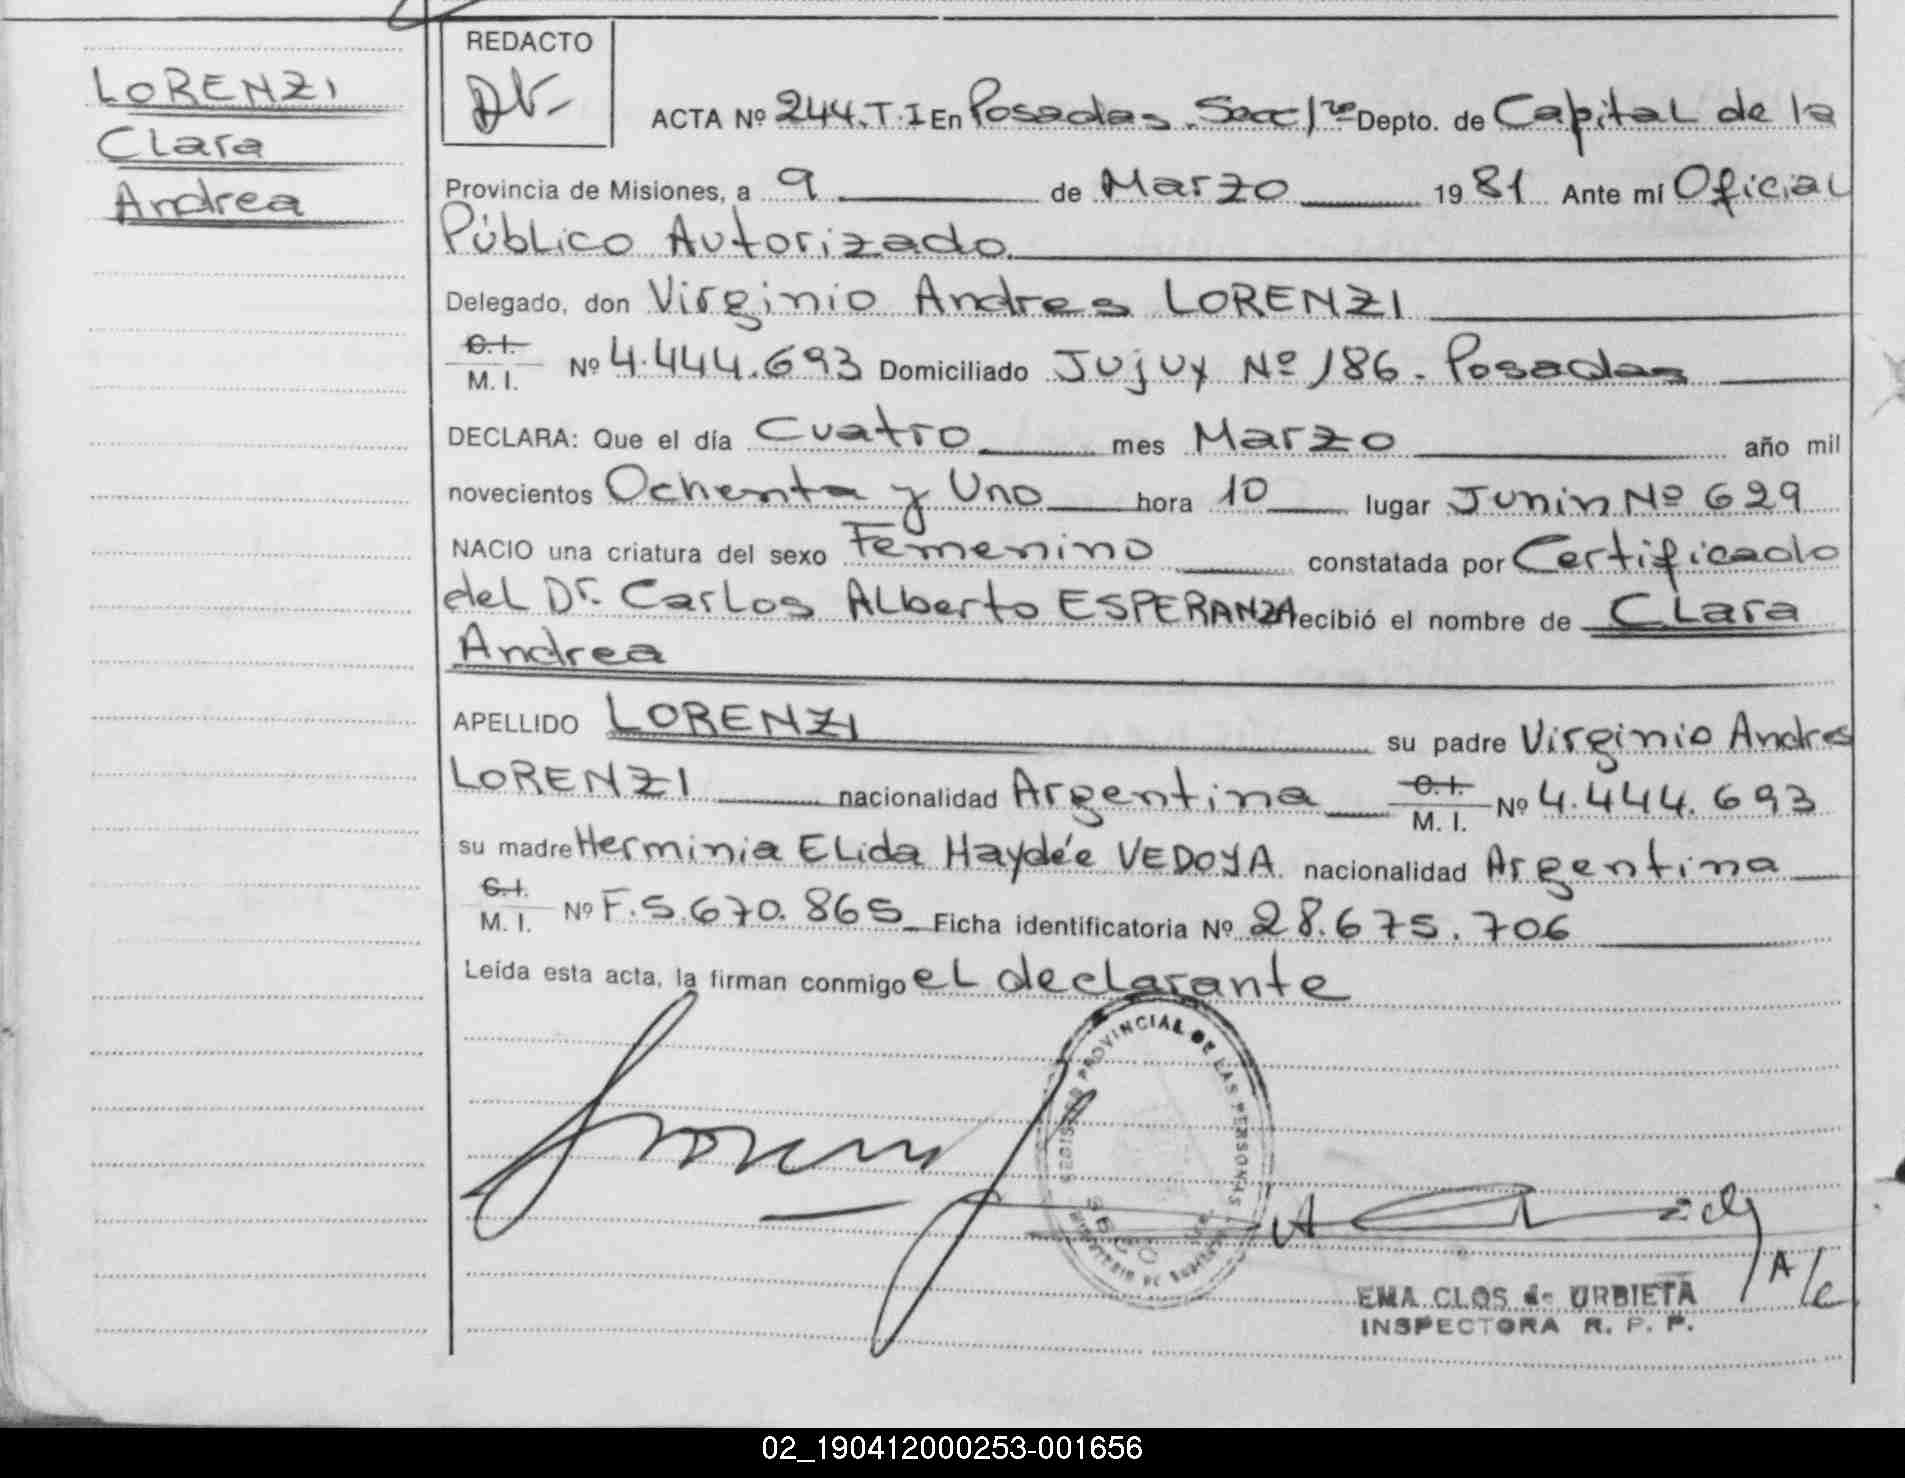 LORENZI
Clara
Andrea
REDACTO
ACTA Nº 244.T.I En Posadas. Secc 1ra Depto. de Capital de la
Provincia de Misiones, a 9 de Marzo 1981 Ante mí Oficial
Público Autorizado
Delegado, don Virginio Andres LORENZI
C.I.
M. I. Nº 4.444.693 Domiciliado Jujuy Nº 186. Posadas
DECLARA: Que el día Cuatro mes Marzo año mil
novecientos Ochenta y Uno hora 10 lugar Junin Nº 629
NACIO una criatura del sexo Femenino constatada por Certificado
del Dr. Carlos Alberto ESPERANZA recibió el nombre de Clara
Andrea
APELLIDO LORENZI su padre Virginio Andres
LORENZI nacionalidad Argentina C.I. M. I. Nº 4.444.693
su madre Herminia Elida Haydée VEDOYA nacionalidad Argentina
C.I.
M. I. Nº F.5.670.865 Ficha identificatoria Nº 28.675.706
Leída esta acta, la firman conmigo el declarante
REGISTRO PROVINCIAL DE LAS PERSONAS
A/c
EMA CLOS de URBIETA
INSPECTORA R. P. P.
02_190412000253-001656